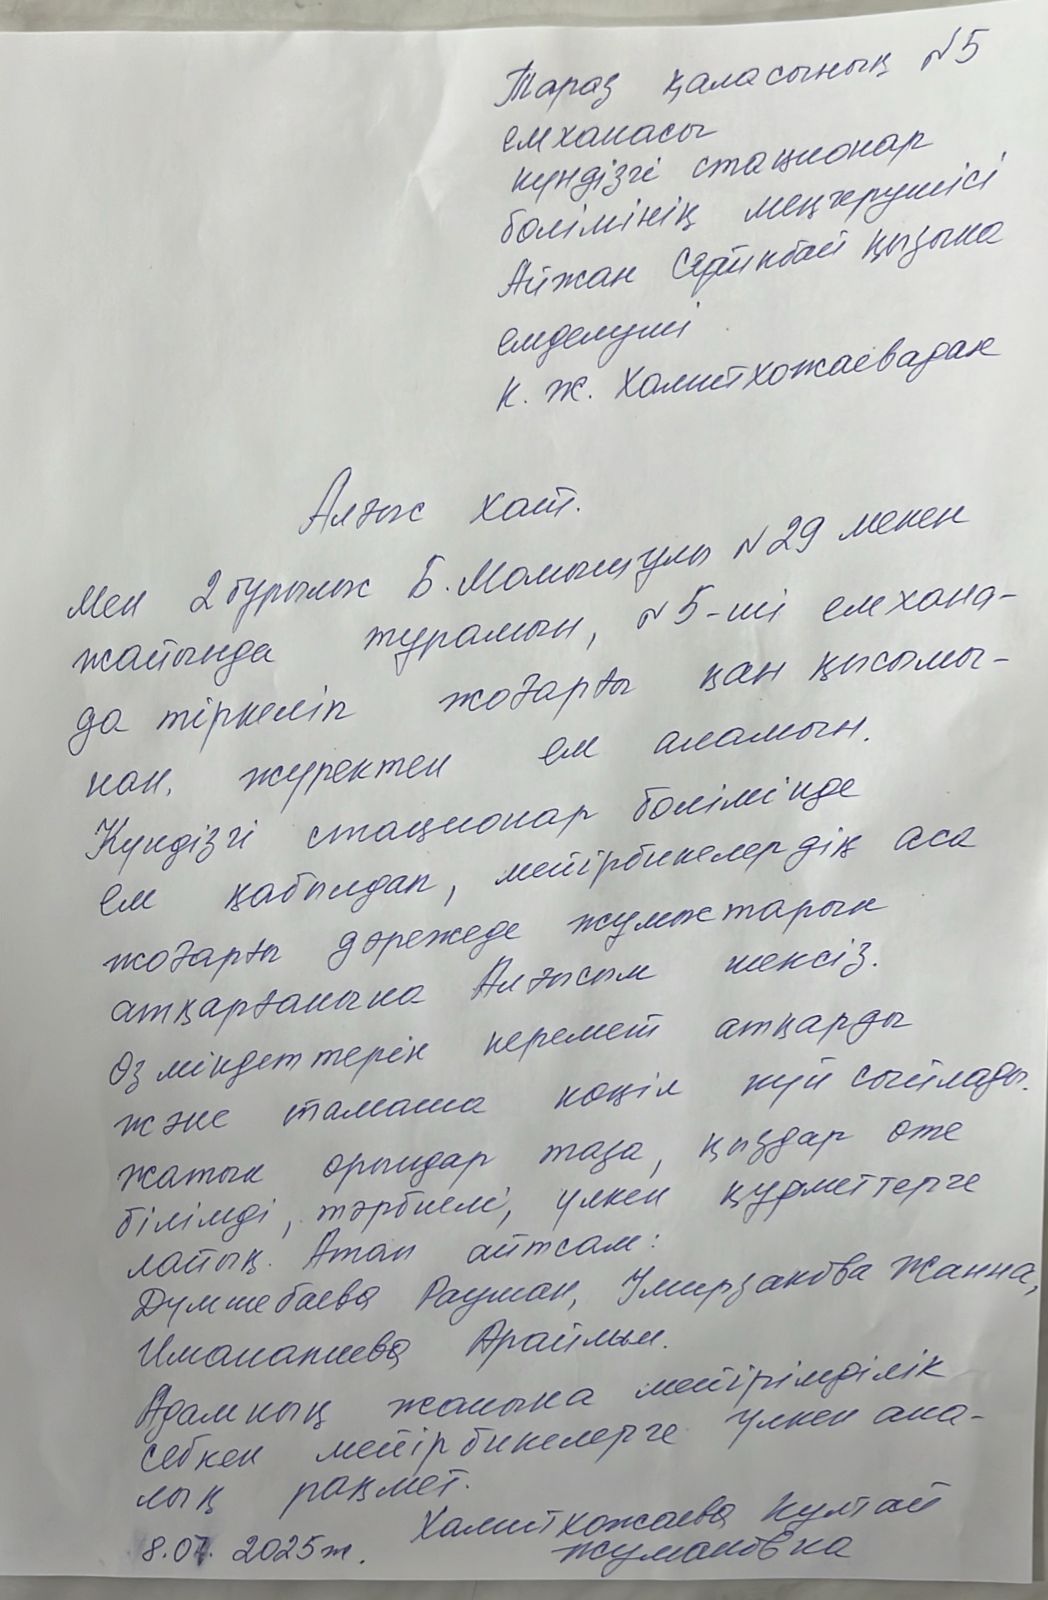 Тараз қаласының №5
емханасы
күндізгі стационар
бөлімінің меңгерушісі
Айжан қызына
емделуші
К. Ж. Халитхожаевадан
Алғыс хат.
Мен 2 бурылыс Б. Момышұлы №29 мекен
жайында тұрамын, №5-ші емхана-
да тіркеліп жоғарғы қан қысымы-
нан, жүректен ем аламын.
Күндізгі стационар бөлімінде
ем қабылдап, мейірбикелердің аса
жоғарғы дәрежеде жұмыстарын
атқарғанына Алғысым шексіз.
Өз міндеттерін керемет атқарды
және тамаша көңіл күй сыйлады.
жатын орындар таза, қыздар өте
білімді, тәрбиелі, үлкен құрметтерге
лайық. Атап айтсам:
Думшебаева Раушан, Умирзакова Жанна,
Иманалиева Арайлым.
Адамның жанына мейірімділік
себкен мейірбикелерге үлкен ана-
лық рақмет.
Халитхожаева Култай
8.07. 2025ж. Жумановна